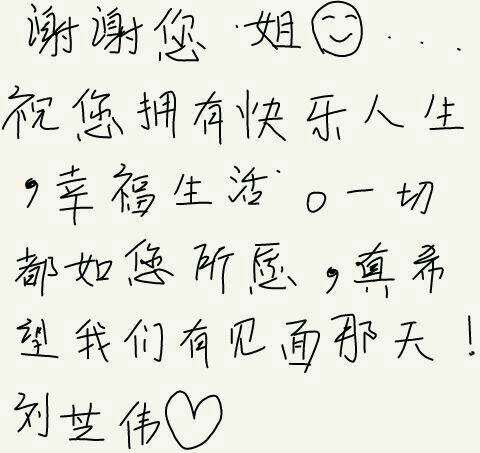 谢谢您 姐☺...
祝您拥有快乐人生
,幸福生活。一切
都如您所愿,真希
望我们有见面那天!
刘芝伟♡